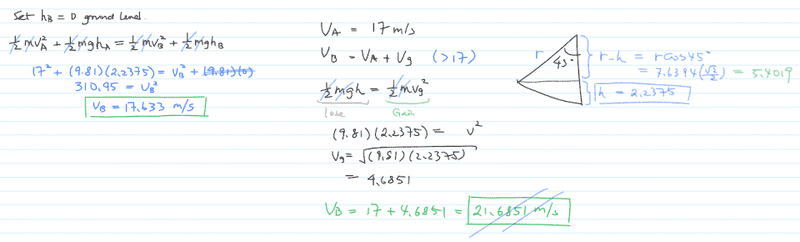 Set h_B = 0 ground level.
½mv_A² + ½mgh_A = ½mv_B² + ½mgh_B
17² + (9.81)(2.2375) = v_B² + (9.81)(0)
310.95 = v_B²
V_B = 17.633 m/s
V_A = 17 m/s
V_B = V_A + V_g (>17)
½mgh = ½mv_g²
Lose Gain
(9.81)(2.2375) = v²
V_g = √(9.81)(2.2375)
= 4.6851
V_B = 17 + 4.6851 = 21.6851 m/s
r
45°
r-h = rcos45°
= 7.6394(√2/2) = 5.4019
h = 2.2375